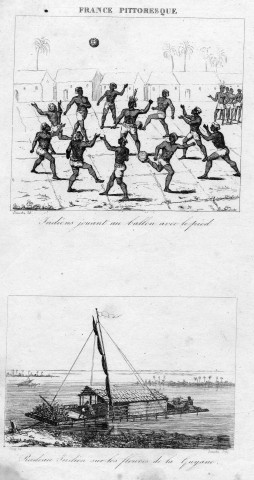 FRANCE PITTORESQUE
Indiens jouant au ballon avec le pied
Radeau Indien sur les fleuves de la Guyane